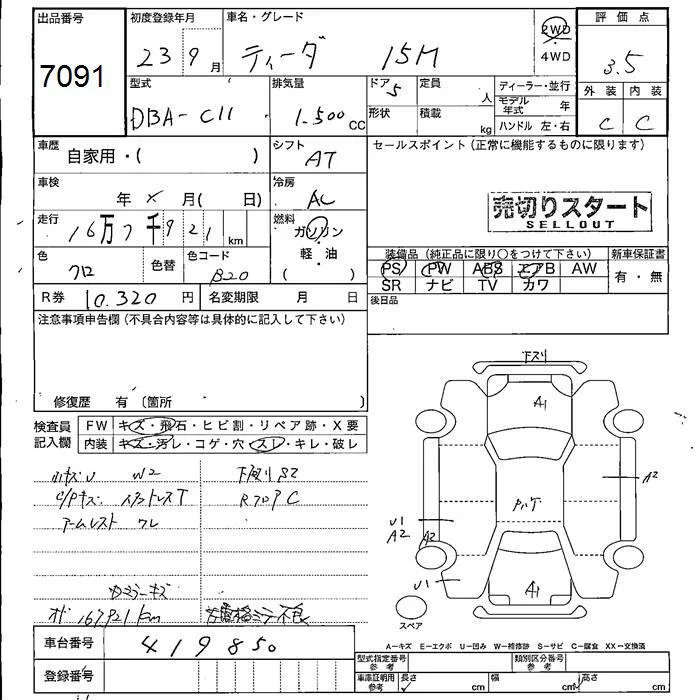 出品番号
7091
初度登録年月
23 9月
車名・グレード
ティーダ 15M
2WD
4WD
評価点
3.5
外装 内装
C C
型式
DBA-C11
排気量
1.500cc
ドア 5
形状
定員 人
積載 kg
ディーラー・並行
モデル年式 年
ハンドル 左・右
車歴
自家用・( )
シフト
AT
車検
年 × 月( 日)
冷房
AC
走行
16万7千921km
燃料
ガソリン
軽・油
( )
色
クロ
色替
色コード
B20
R券 10.320円
名変期限 月 日
セールスポイント(正常に機能するものに限ります)
売切りスタート
SELLOUT
装備品(純正品に限り○をつけて下さい)
PS PW ABS エアB AW
SR ナビ TV カワ
新車保証書
有・無
後日品
注意事項申告欄(不具合内容等は具体的に記入して下さい)
修復歴 有(箇所 )
検査員記入欄
FW キズ・飛石・ヒビ割・リペア跡・X要
内装 キズ・汚レ・コゲ・穴・スレ・キレ・破レ
小キズU W2
下廻りS2
アームレスト ワレ
167921km
下スリ
A1
A2
U1
A2
A2
U1
A1
スペア
車台番号 419850
登録番号
A-キズ E-エクボ U-凹み W-補修跡 S-サビ C-腐食 XX-交換済
型式指定番号参考
類別区分番号参考
車庫証明用参考
長さ cm
幅 cm
高さ cm